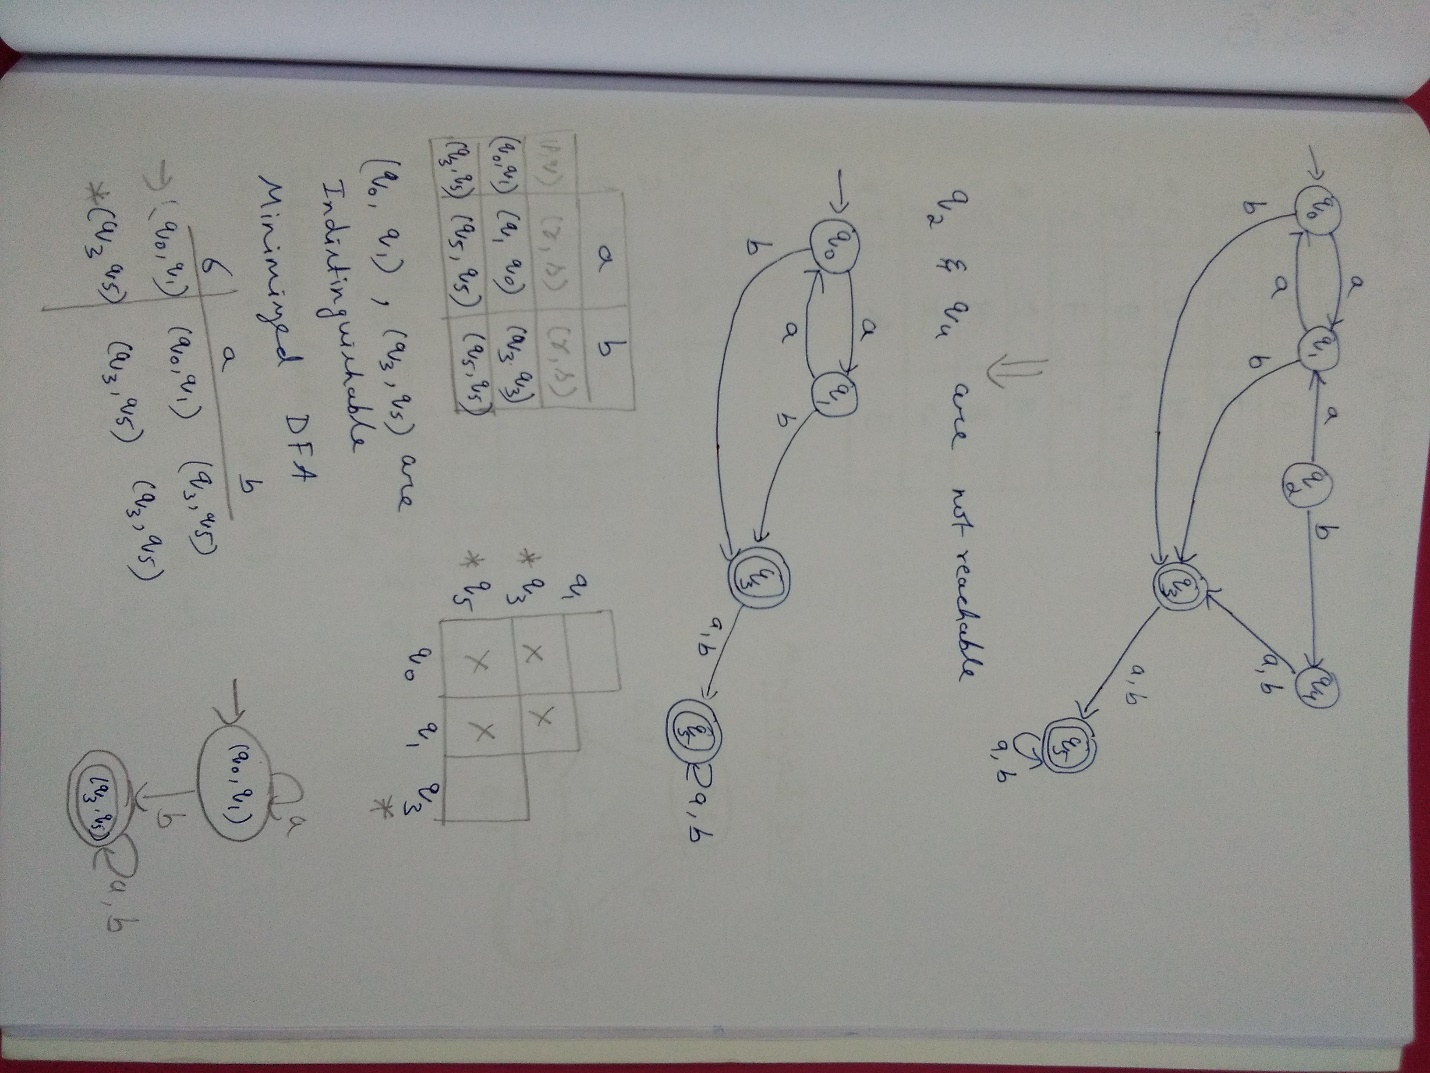 → q0 a q1 a q2 b q4
a
b b a, b
q3 a, b q5 a, b
⇓
q2 & q4 are not reachable
→ q0 a q1
a
b b
q3 a, b q5 a, b
a b
(p,q) (r,s) (r,s)
(q0,q1) (q1 q0) (q3, q3)
(q3, q5) (q5, q5) (q5, q5)
q1
* q3 X X
* q5 X X
q0 q1 q3 *
(q0, q1), (q3, q5) are
Indistinguishable
Minimized DFA
δ a b
→ (q0, q1) (q0, q1) (q3, q5)
* (q3 q5) (q3, q5) (q3, q5)
→ (q0, q1) a
b
(q3, q5) a, b